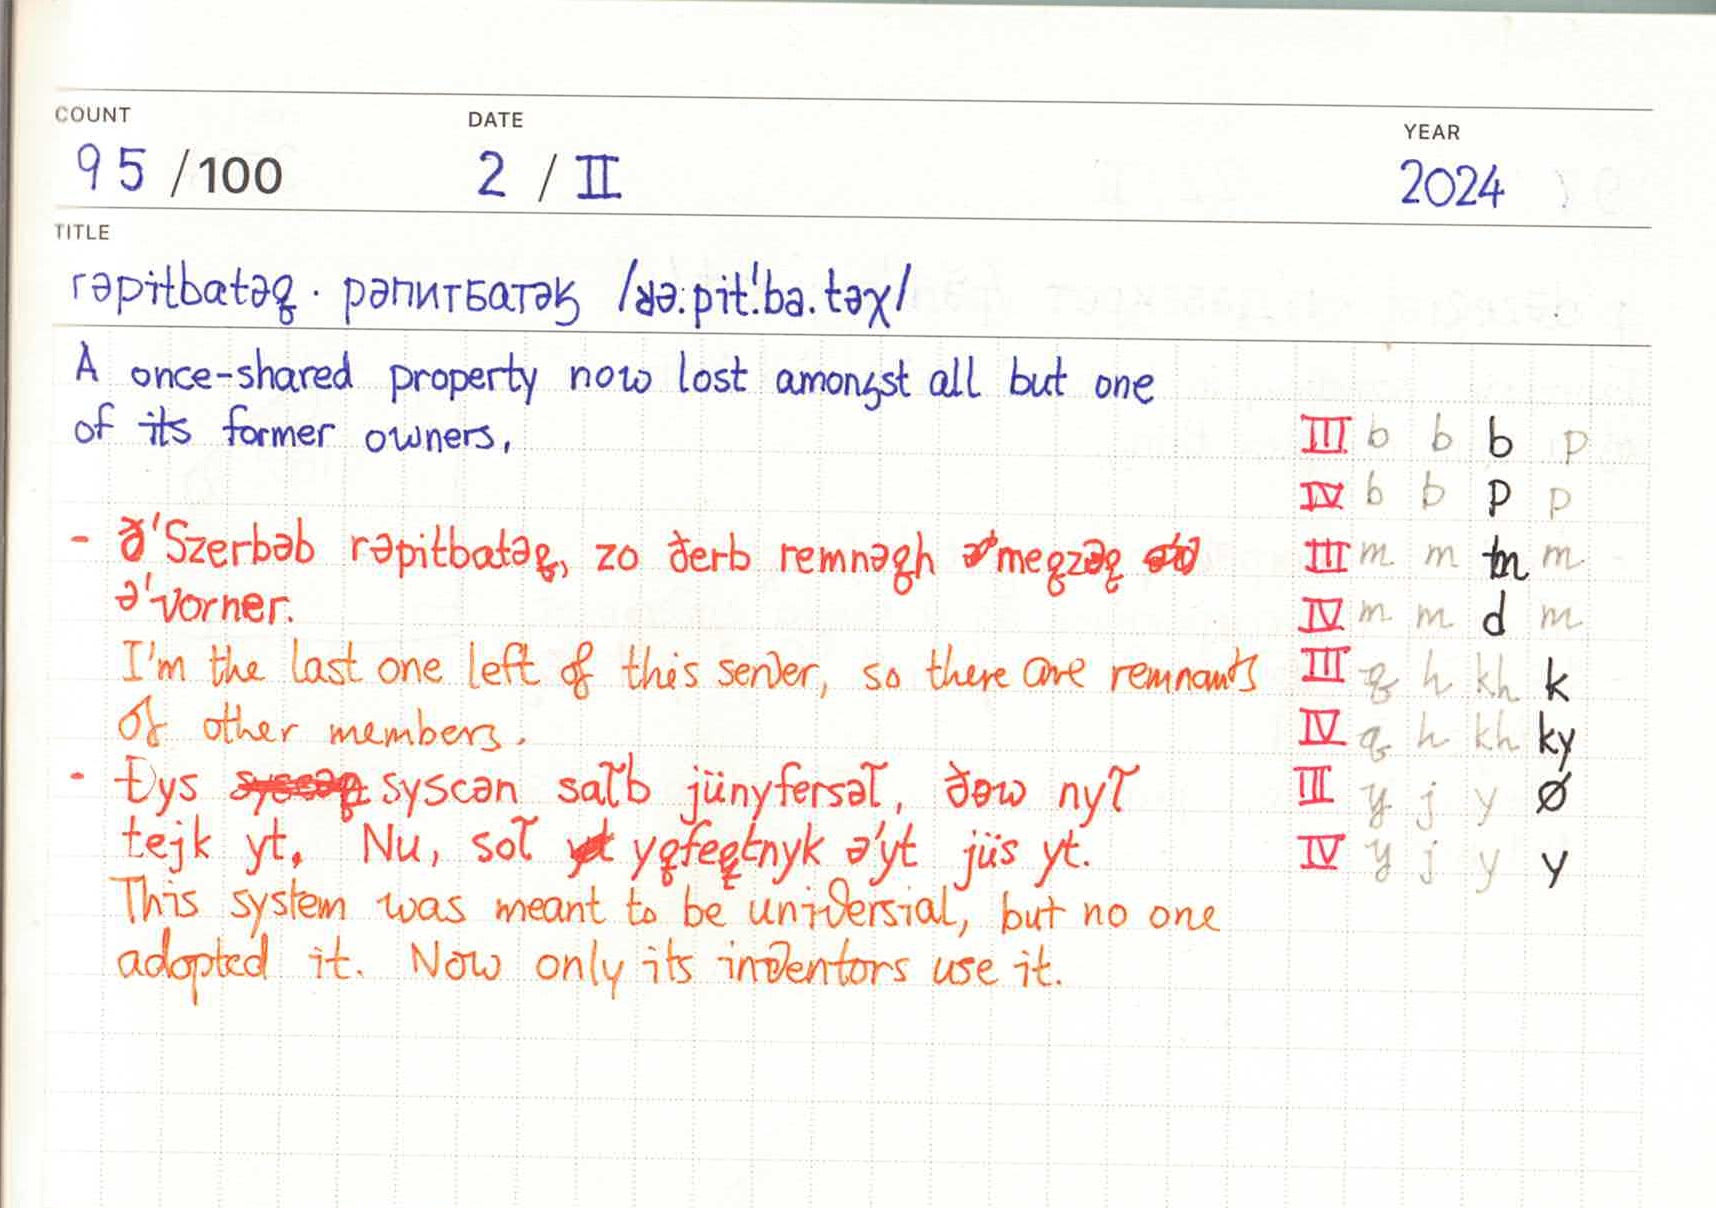 COUNT DATE YEAR
95 /100 2 / II 2024
TITLE
rəpitbatəq · рәпитбатәҕ /ʁə.pit.'ba.təχ/
A once-shared property now lost amongst all but one
of its former owners.
- ð'Szerbəb rəpitbatəq, zo ðerb remnəqh meqzəq
ə'vorner.
I'm the last one left of this server, so there are remnants
of other members.
- Ðys syscən sal̃b jünyfersəl̃, ðəw nyl̃
tejk yt. Nu, sol̃ yqfeqtnyk ə'yt jüs yt.
This system was meant to be universial, but no one
adopted it. Now only its inventors use it.
III b b b p
IV b b p p
III m m m m
IV m m d m
III q h kh k
IV q h kh ky
III y j y ø
IV y j y y